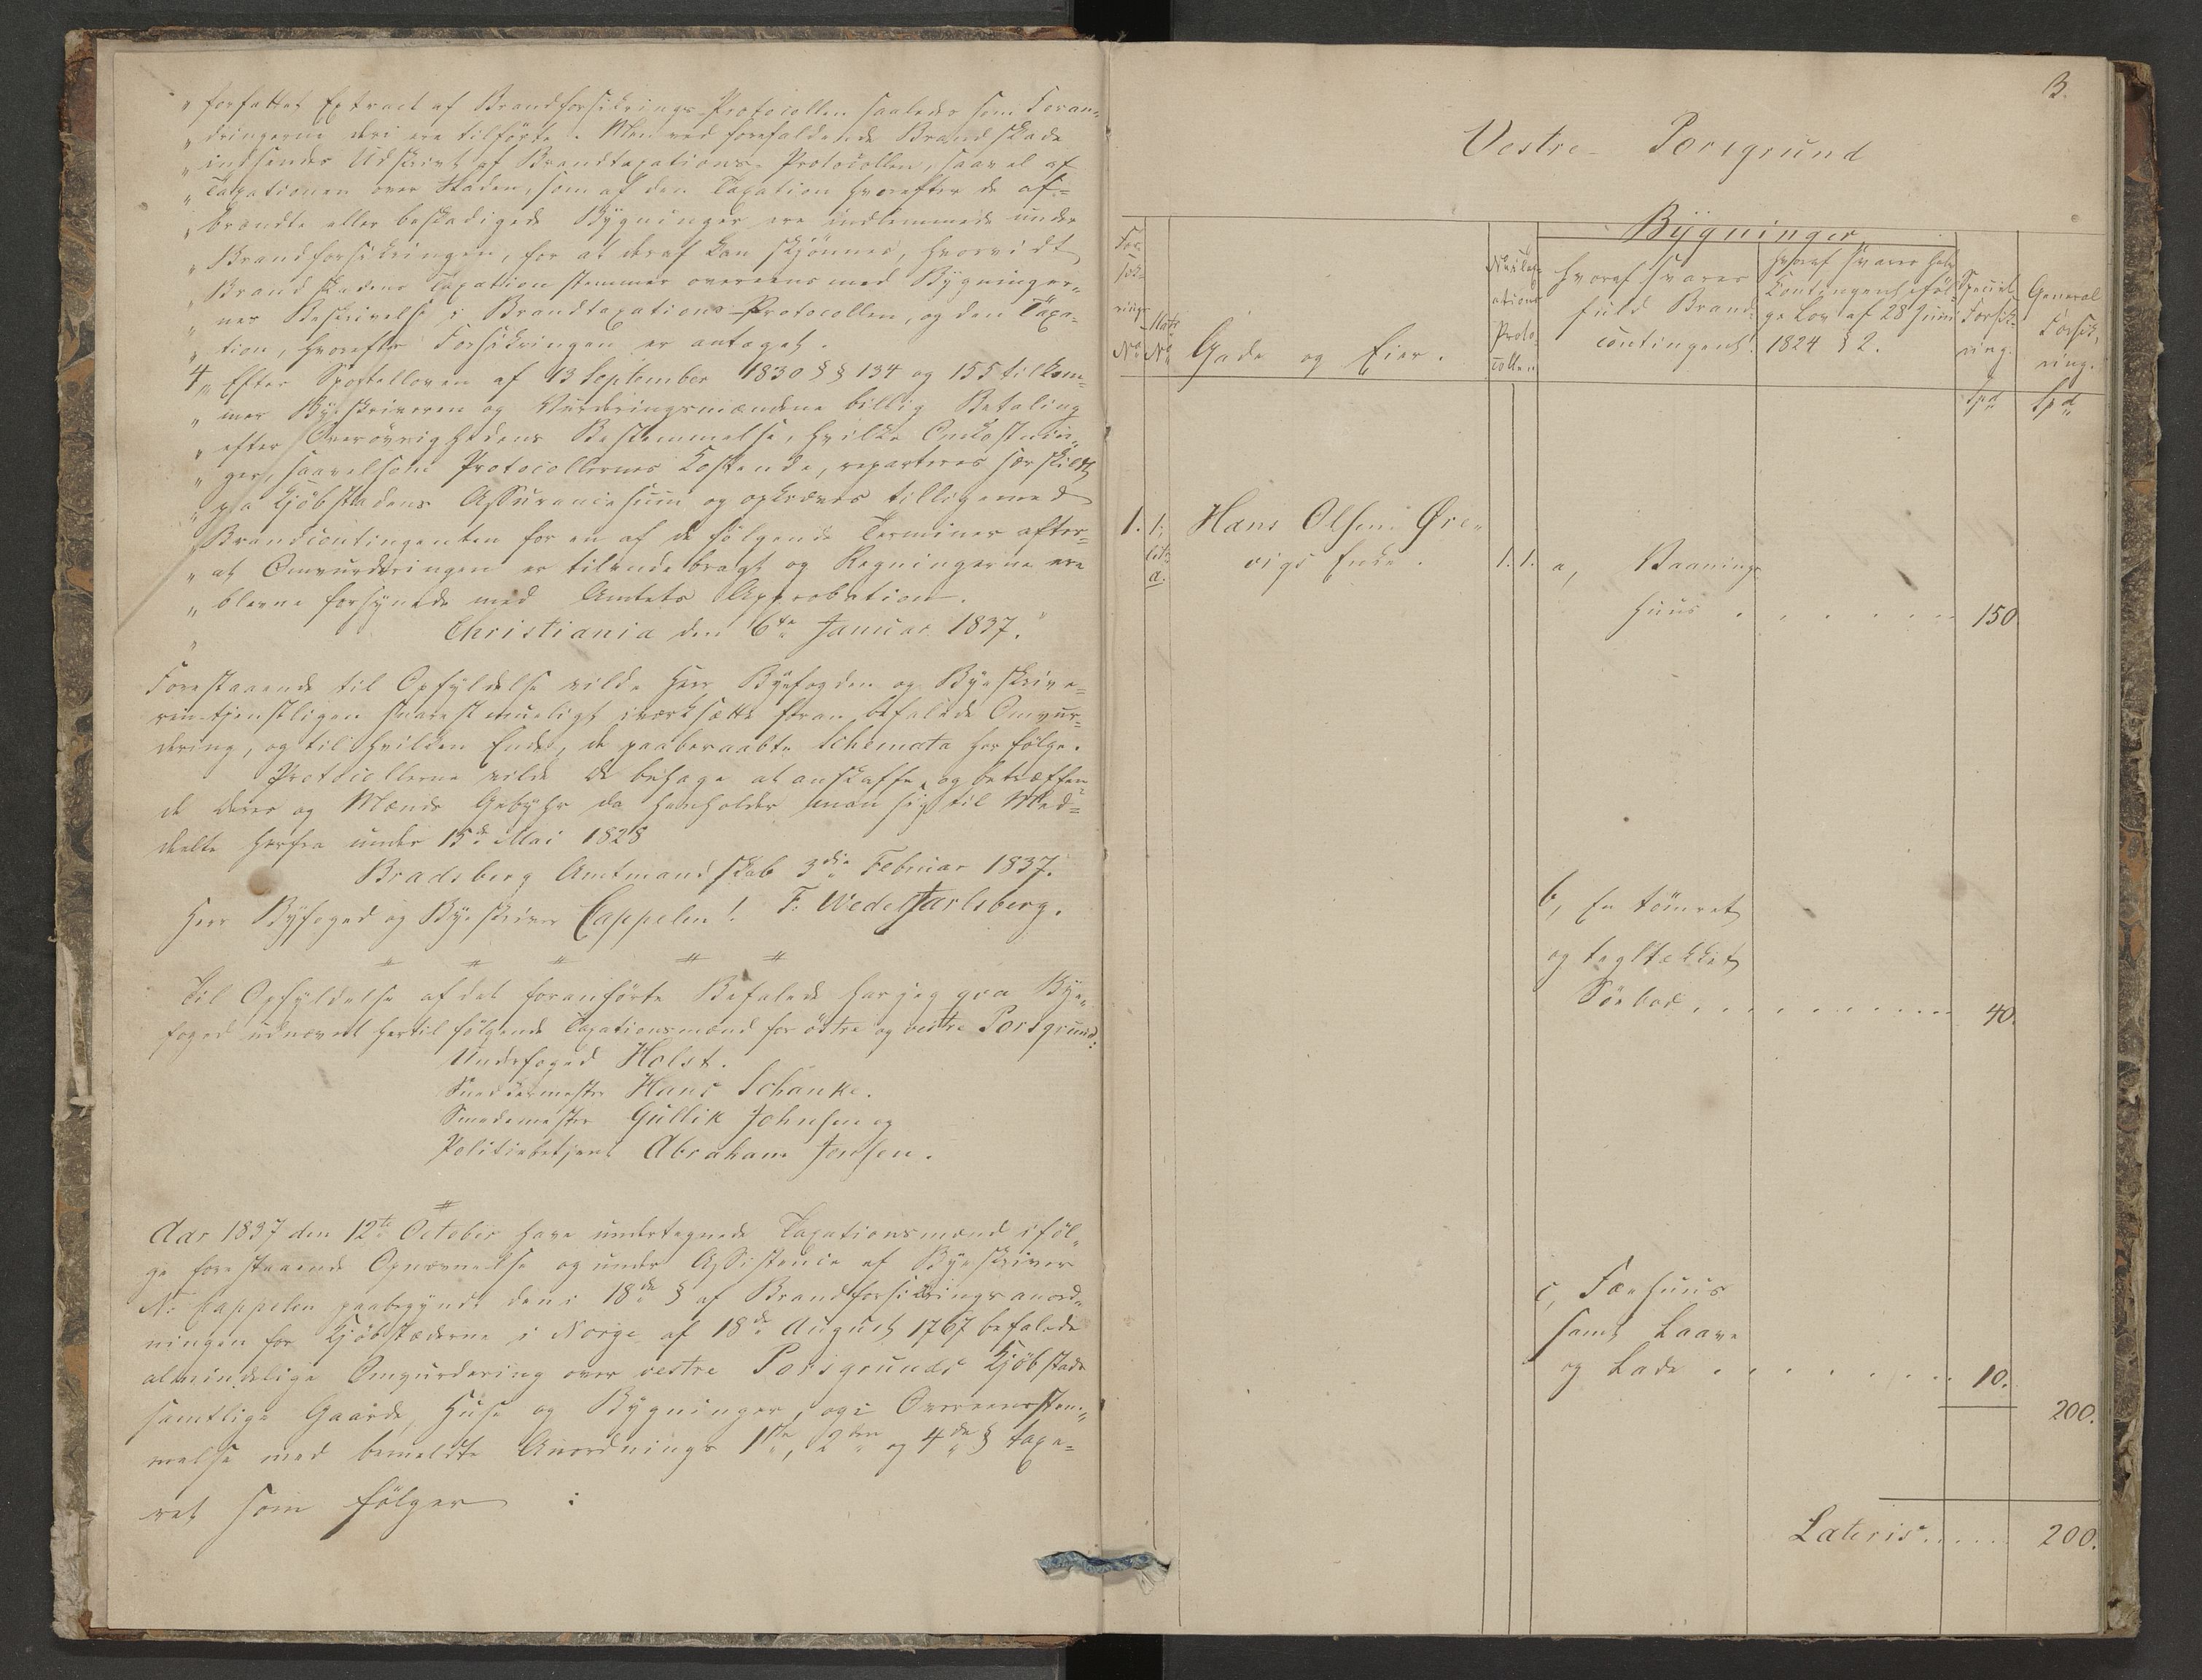 „ forfattet Extract af Brandforsikrings-Protocollen saaledes som Foran-
„ dringerne deri ere tilførte. Men ved forefaldende Brandskade
„ indsendes Udskrivt af Brandtaxations-Protocollen, saavel af
„ Taxationen over Skaden, som af den Taxation hvorefter de af=
„ brændte eller beskadigede Bygninger ere indlemmede under
„ Brandforsikringen, for at deraf kan skjønnes, hvorvidt
„ Brandskadens Taxation stemmer overeens med Bygninger-
„ nes Beskrivelse i Brandtaxations-Protocollen, og den Taxa-
„ tion, hvorefter Forsikringen er antaget.
4„ Efter Sportelloven af 13 September 1830 §§ 134 og 155 tilkom-
„ mer Byeskriveren og Vurderingsmændene billig Betaling
„ efter Overøvrighedens Bestemmelse, hvilke Omkostnin-
„ ger, saavelsom Protocollernes Kostende, reparteres særskildt
„ paa Kjøbstadens Assurancesum og opkræves tilligemed
Brandcontingenten for en af de følgende Terminer efter-
„ at Omvurderingen er tilendebragt og Regningerne ere
„ blevne forsynede med Amtets Approbation.
„ Christiania den 6te Januar 1837.“
Forestaaende til Opfyldelse vilde Herr Byefogden og Byeskrive=
ren tjenstligen snarest mueligt iværksætte foran befalede Omvur=
dering, og til hvilken Ende, de paaberaabte Schemata her følge.
Protocollerne vilde De behage at anskaffe, og betræffen-
de Deres og Mænds Gebyhr da henholder man sig til Med=
deelte herfra under 15de Mai 1828
Bradsberg Amtmandskab 3die Februar 1837.
F: Wedel Jarlsberg.
Herr Byefoged og Byeskriver Cappelen!
Til Opfyldelse af det foranførte Befalede har jeg qva Bye-
foged udnævnt hertil følgende Taxationsmænd for østre og vestre Porsgrund:
Underfoged Holst.
Snedkermester Hans Schanke.
Smedemester Gullik Johnsen og
Politiebetjent Abraham Jensen.
Aar 1837 den 12te October have undertegnede Taxationsmænd iføl-
ge forestaaende Opnævnelse og under Assistence af Byeskriver
N: Cappelen paabegyndt den i 18de § af Brandforsikringsanord-
ningen for Kjøbstæderne i Norge af 18de August 1767 befalede
almindelige Omvurdering over vestre Porsgrunds Kjøbstads
samtlige Gaarde, Huse og Bygninger, og i Overeensstem-
melse med bemeldte Anordnings 1ste, 2den og 4de § taxe=
ret som følger :
3.
Vestre Porsgrund
For
sik-
rings
No
Matr
No
Gade og Eier.
Proto
collen
Bygninger
hvoraf svares
fuld Brand-
contingent.
hvoraf svares halv
Contingent iføl-
ge Lov af 28 Juni
1824 § 2.
Special
Forsik-
ring.
General
Forsik-
ring.
Spd
Spd
1. 1. Hans Olsen Øre-
Litr a. vigs Enke. 1. 1. a, Vaanings
huus . . . . . . 150
b, En tømret
og tegltækket
Søebod . . . . . . . . . 40.
c, Fæehuus
samt Laave
og Lade . . . . . . . 10.
200.
Lateris . . . . . 200.